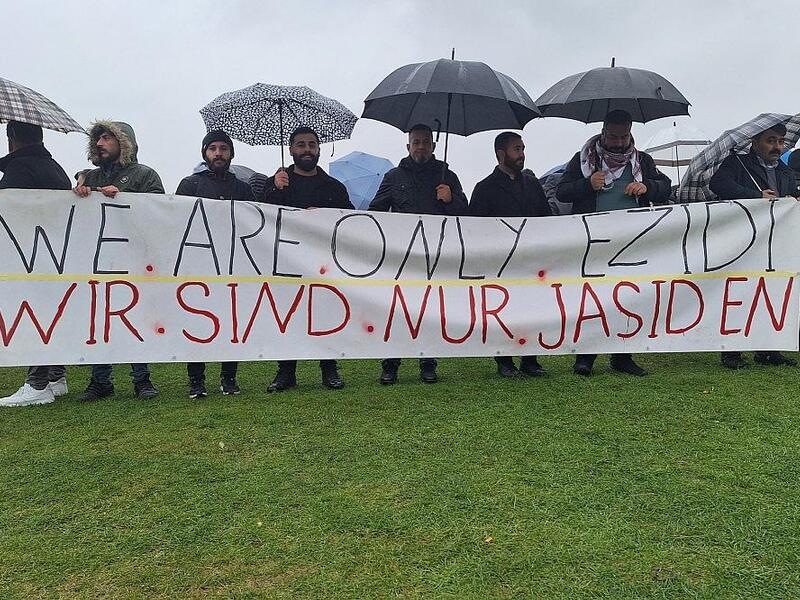 WE.ARE.ONLY.EZIDI
WIR.SIND.NUR.JASIDEN